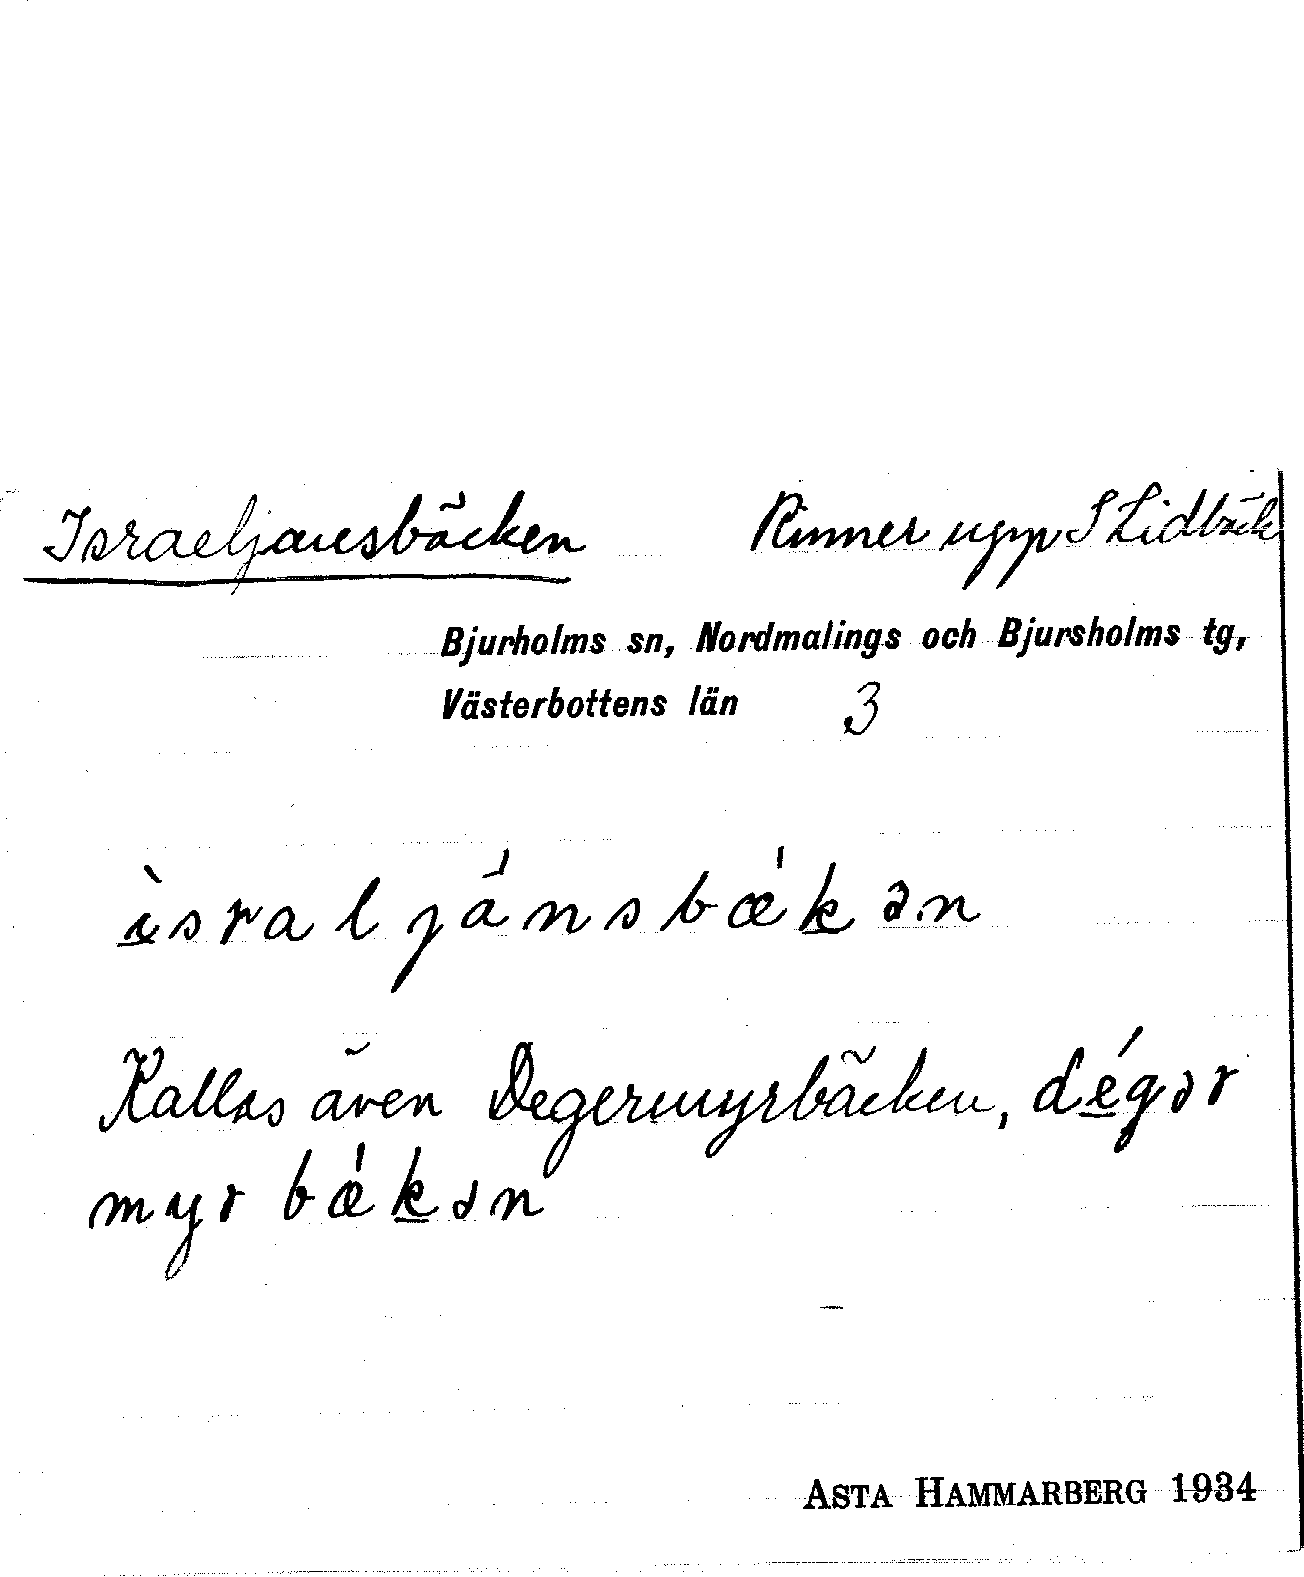 Israeljansbäcken Rinner upp S Lidbäck
Bjurholms sn, Nordmalings och Bjursholms tg,
Västerbottens län 3
ìsraljánsbǽkən
Kallas även Degermyrbäcken, dégər
myrbǽkən
ASTA HAMMARBERG 1934